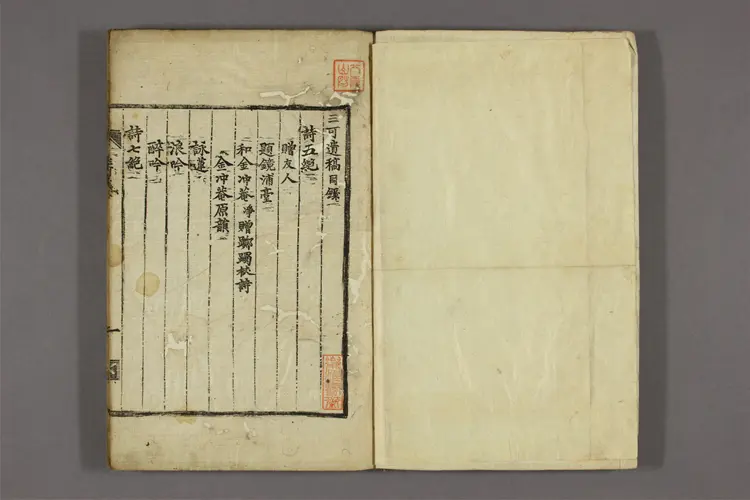 三可遺稿目錄
詩五絶
贈友人
題鏡浦臺
和金冲菴淨贈躑躅杖詩
金冲菴原韻
詠蓮
浪吟
醉吟
詩七絶